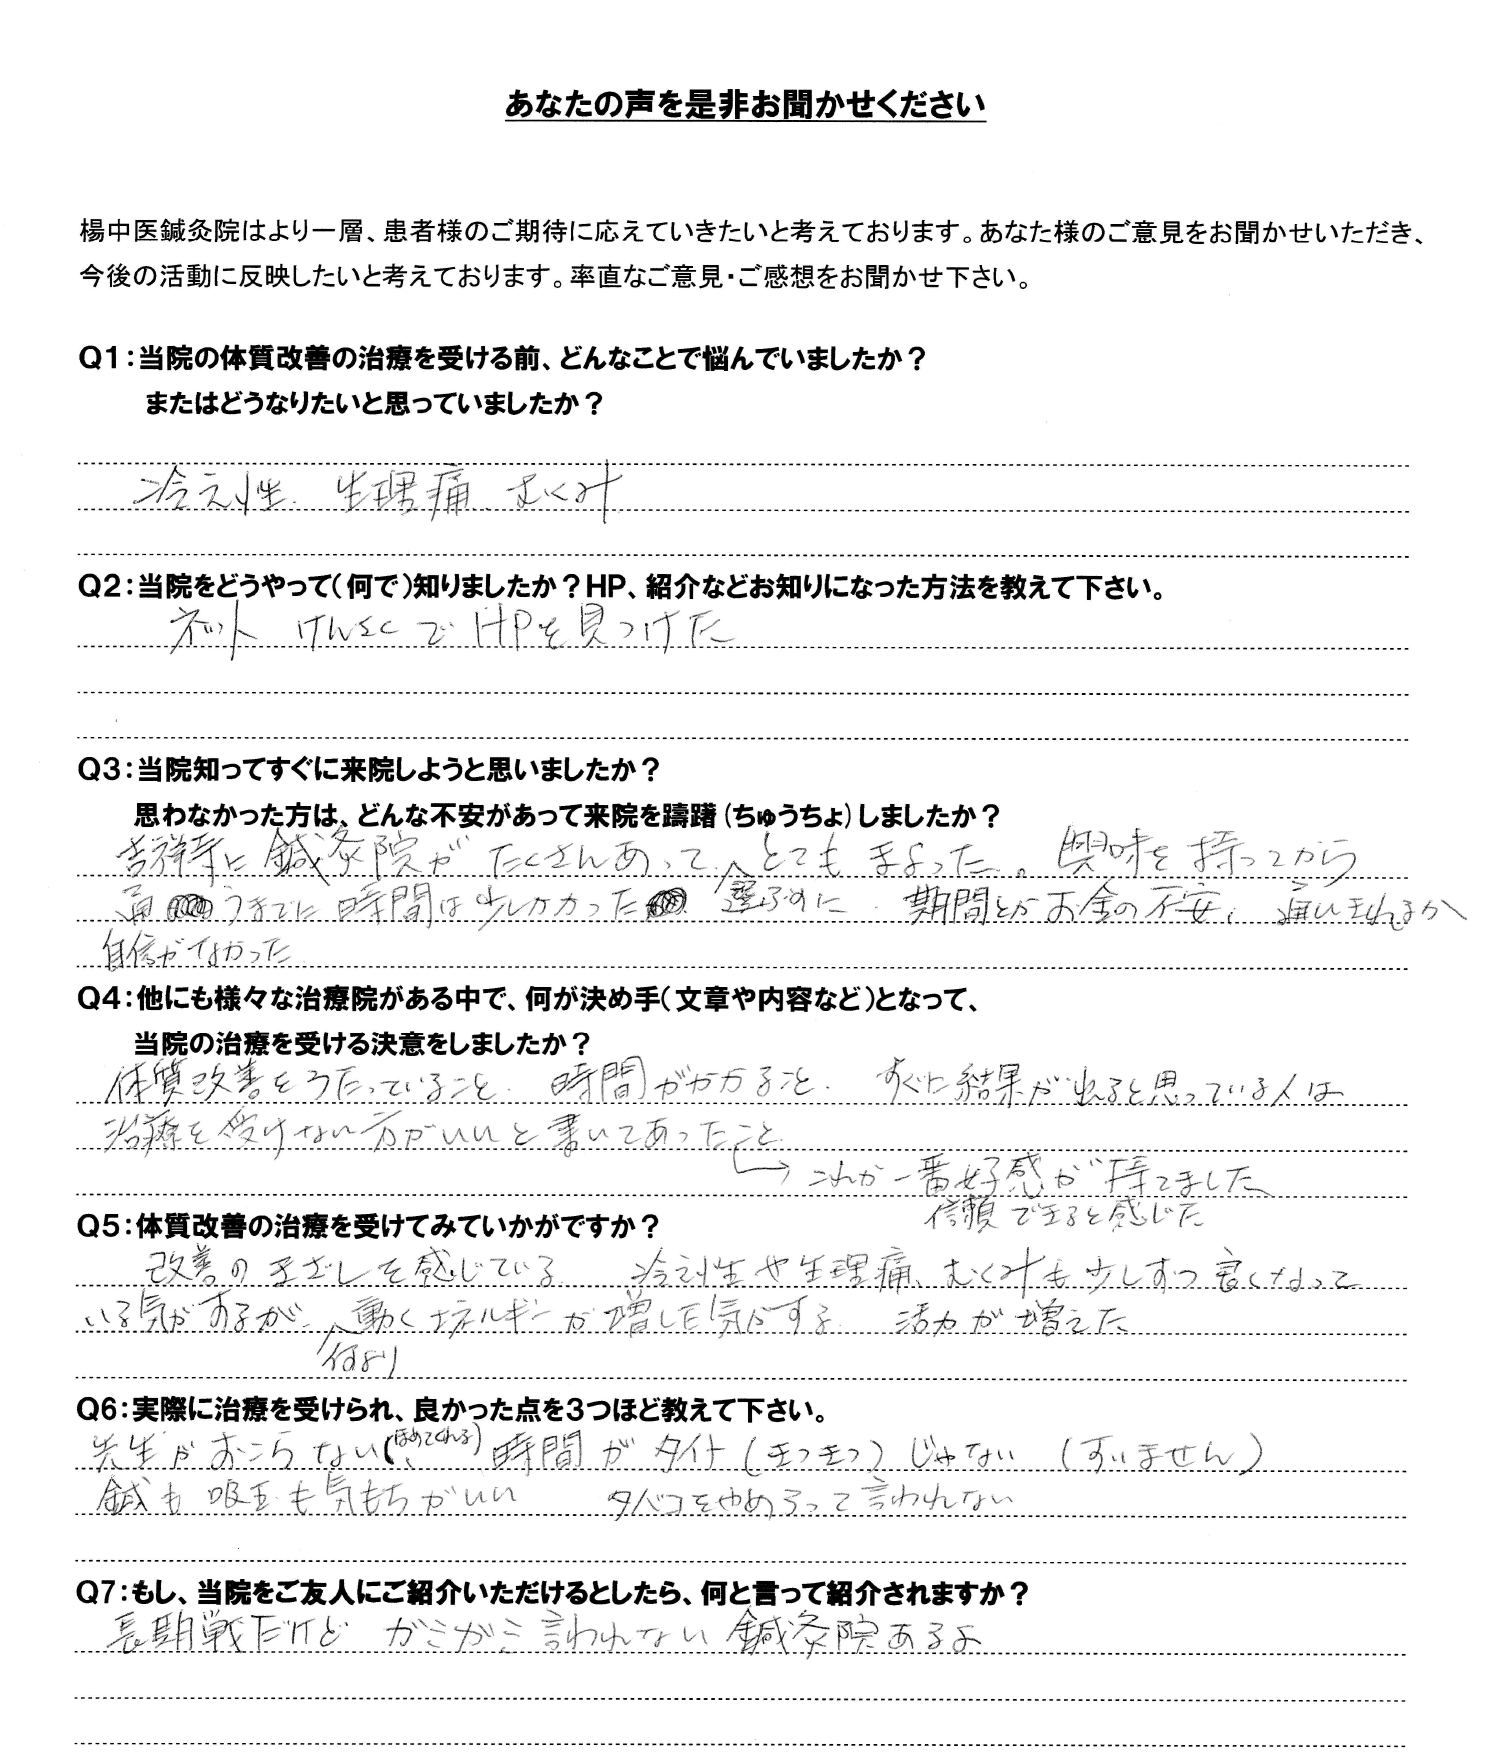 あなたの声を是非お聞かせください
楊中医鍼灸院はより一層、患者様のご期待に応えていきたいと考えております。あなた様のご意見をお聞かせいただき、
今後の活動に反映したいと考えております。率直なご意見・ご感想をお聞かせ下さい。
Q1：当院の体質改善の治療を受ける前、どんなことで悩んでいましたか？
またはどうなりたいと思っていましたか？
冷え性、生理痛、むくみ
Q2：当院をどうやって（何で）知りましたか？HP、紹介などお知りになった方法を教えて下さい。
ネット けんさくで HPを見つけた
Q3：当院知ってすぐに来院しようと思いましたか？
思わなかった方は、どんな不安があって来院を躊躇（ちゅうちょ）しましたか？
吉祥寺に 鍼灸院が たくさんあって、とても まよった。興味を持ってから
通うまでに 時間は少しかかった 選ぶのに 期間とか お金の不安、通いきれるか
自信がなかった
Q4：他にも様々な治療院がある中で、何が決め手（文章や内容など）となって、
当院の治療を受ける決意をしましたか？
体質改善をうたっていること。時間がかかること。すぐに結果が出ると思っている人は
治療を受けない方がいいと書いてあったこと
→ これが一番好感が持てました
信頼できると感じた
Q5：体質改善の治療を受けてみていかがですか？
改善のきざしを感じている 冷え性や生理痛、むくみも少しずつ良くなって
いる気がするが、動くエネルギーが増した気がする 活力が増えた
何より
Q6：実際に治療を受けられ、良かった点を3つほど教えて下さい。
先生がおこらない(ほめてくれる) 時間がタイト（きつきつ）じゃない （すいません）
鍼も吸玉も気もちがいい タバコをやめろって言われない
Q7：もし、当院をご友人にご紹介いただけるとしたら、何と言って紹介されますか？
長期戦だけど ガミガミ言われない 鍼灸院あるよ